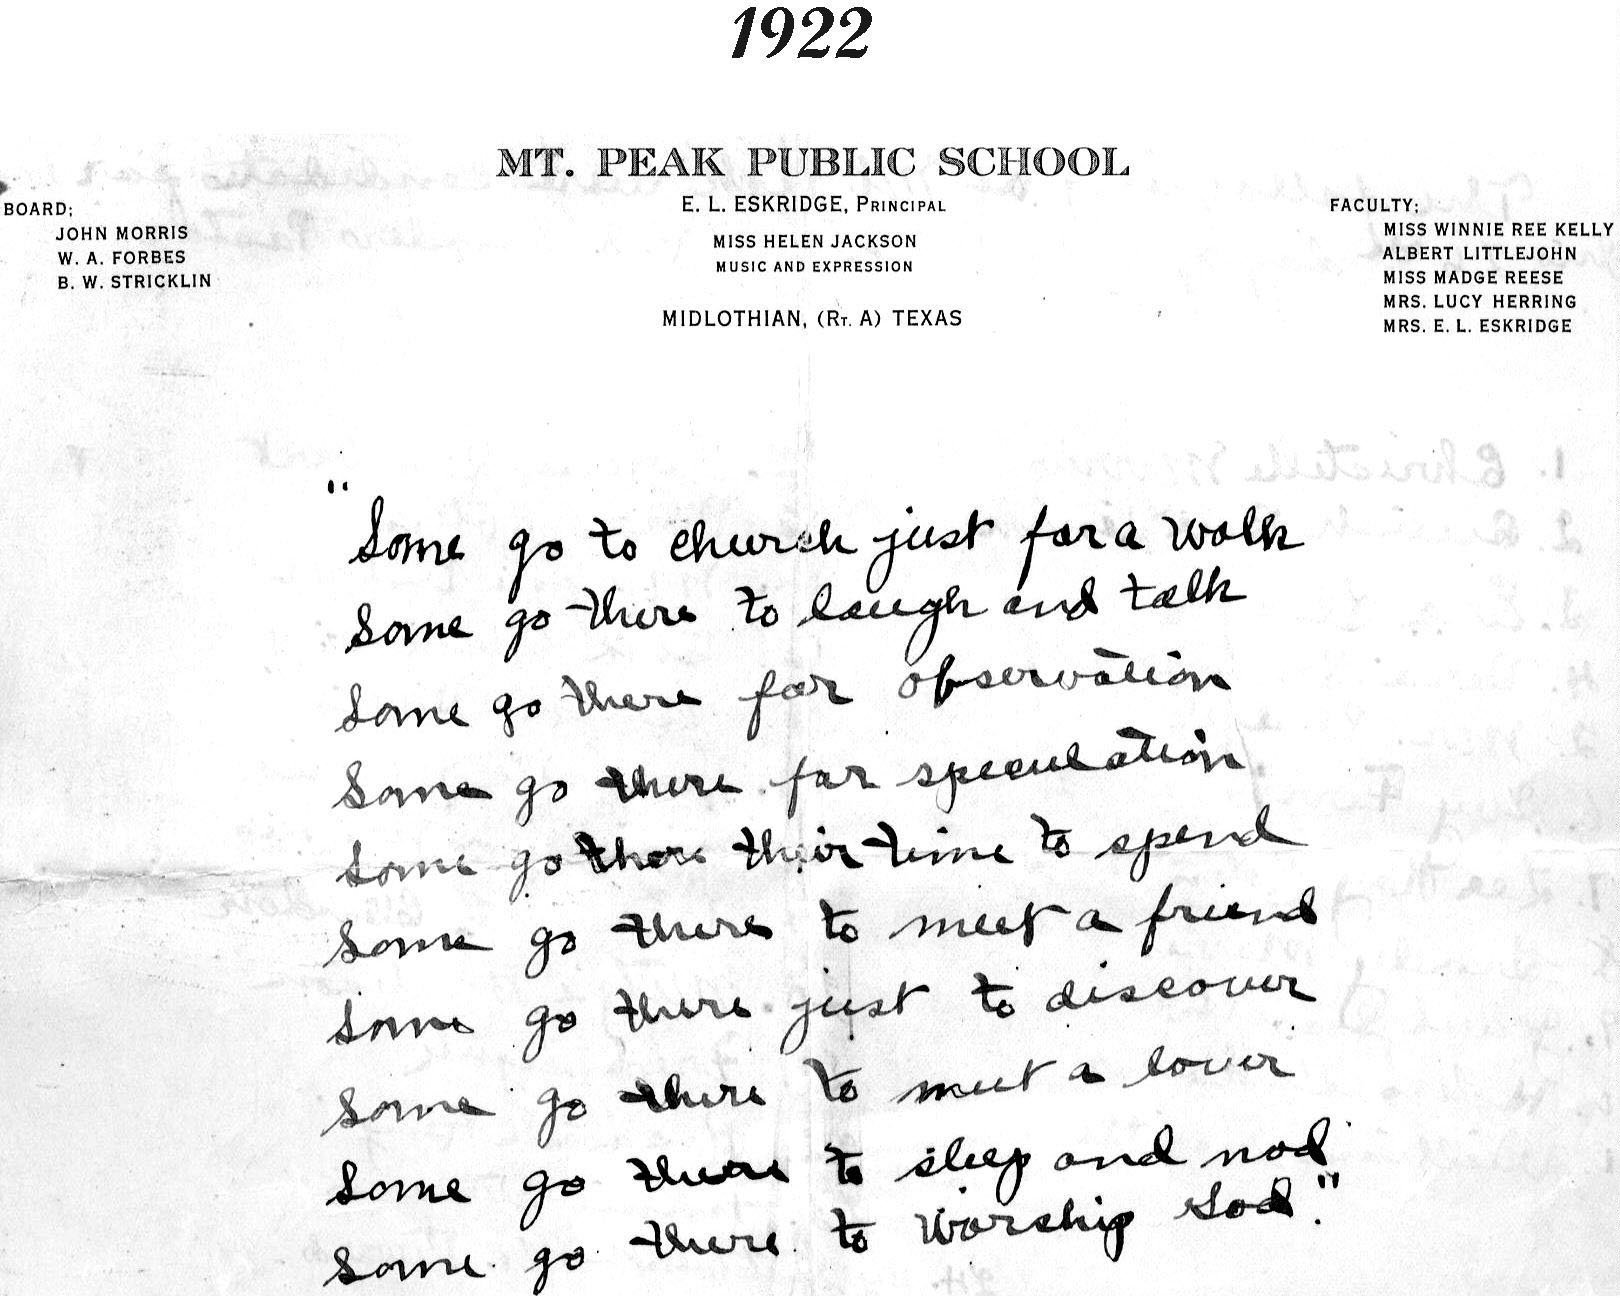 1922
MT. PEAK PUBLIC SCHOOL
E. L. ESKRIDGE, PRINCIPAL
MISS HELEN JACKSON
MUSIC AND EXPRESSION
MIDLOTHIAN, (RT. A) TEXAS
BOARD;
JOHN MORRIS
W. A. FORBES
B. W. STRICKLIN
FACULTY;
MISS WINNIE REE KELLY
ALBERT LITTLEJOHN
MISS MADGE REESE
MRS. LUCY HERRING
MRS. E. L. ESKRIDGE
"Some go to church just for a walk
Some go there to laugh and talk
Some go there for observation
Some go there for speculation
Some go there their time to spend
Some go there to meet a friend
Some go there just to discover
Some go there to meet a lover
Some go there to sleep and nod
Some go there to worship God."